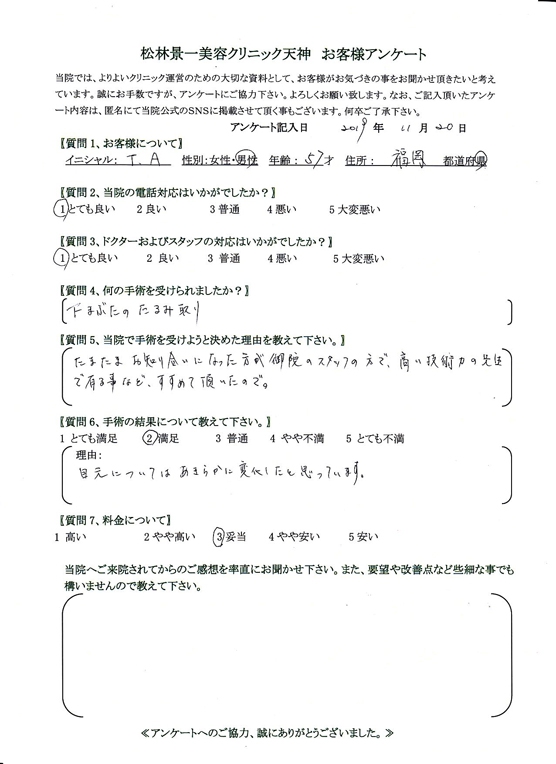 松林景一美容クリニック天神　お客様アンケート
当院では、よりよいクリニック運営のための大切な資料として、お客様がお気づきの事をお聞かせ頂きたいと考え
ています。誠にお手数ですが、アンケートにご協力下さい。よろしくお願い致します。なお、ご記入頂いたアンケ
ート内容は、匿名にて当院公式のSNSに掲載させて頂く事もございます。何卒ご了承下さい。
アンケート記入日　2019 年 11 月 20 日
【質問1、お客様について】
イニシャル： T.A　性別：女性・男性　年齢：57才　住所：福岡　都道府県
【質問2、当院の電話対応はいかがでしたか？】
1とても良い　2 良い　3 普通　4 悪い　5 大変悪い
【質問3、ドクターおよびスタッフの対応はいかがでしたか？】
1とても良い　2 良い　3 普通　4 悪い　5 大変悪い
【質問4、何の手術を受けられましたか？】
下まぶたの たるみ取り
【質問5、当院で手術を受けようと決めた理由を教えて下さい。】
たまたま お知り合いになった方が 御院のスタッフの方で、高い技術力の先生
で有る事など、すすめて頂いたので。
【質問6、手術の結果について教えて下さい。】
1 とても満足　2満足　3 普通　4 やや不満　5 とても不満
理由：
目元については あきらかに変化したと思っています。
【質問7、料金について】
1 高い　2 やや高い　3妥当　4 やや安い　5 安い
当院へご来院されてからのご感想を率直にお聞かせ下さい。また、要望や改善点など些細な事でも
構いませんので教えて下さい。
≪アンケートへのご協力、誠にありがとうございました。≫